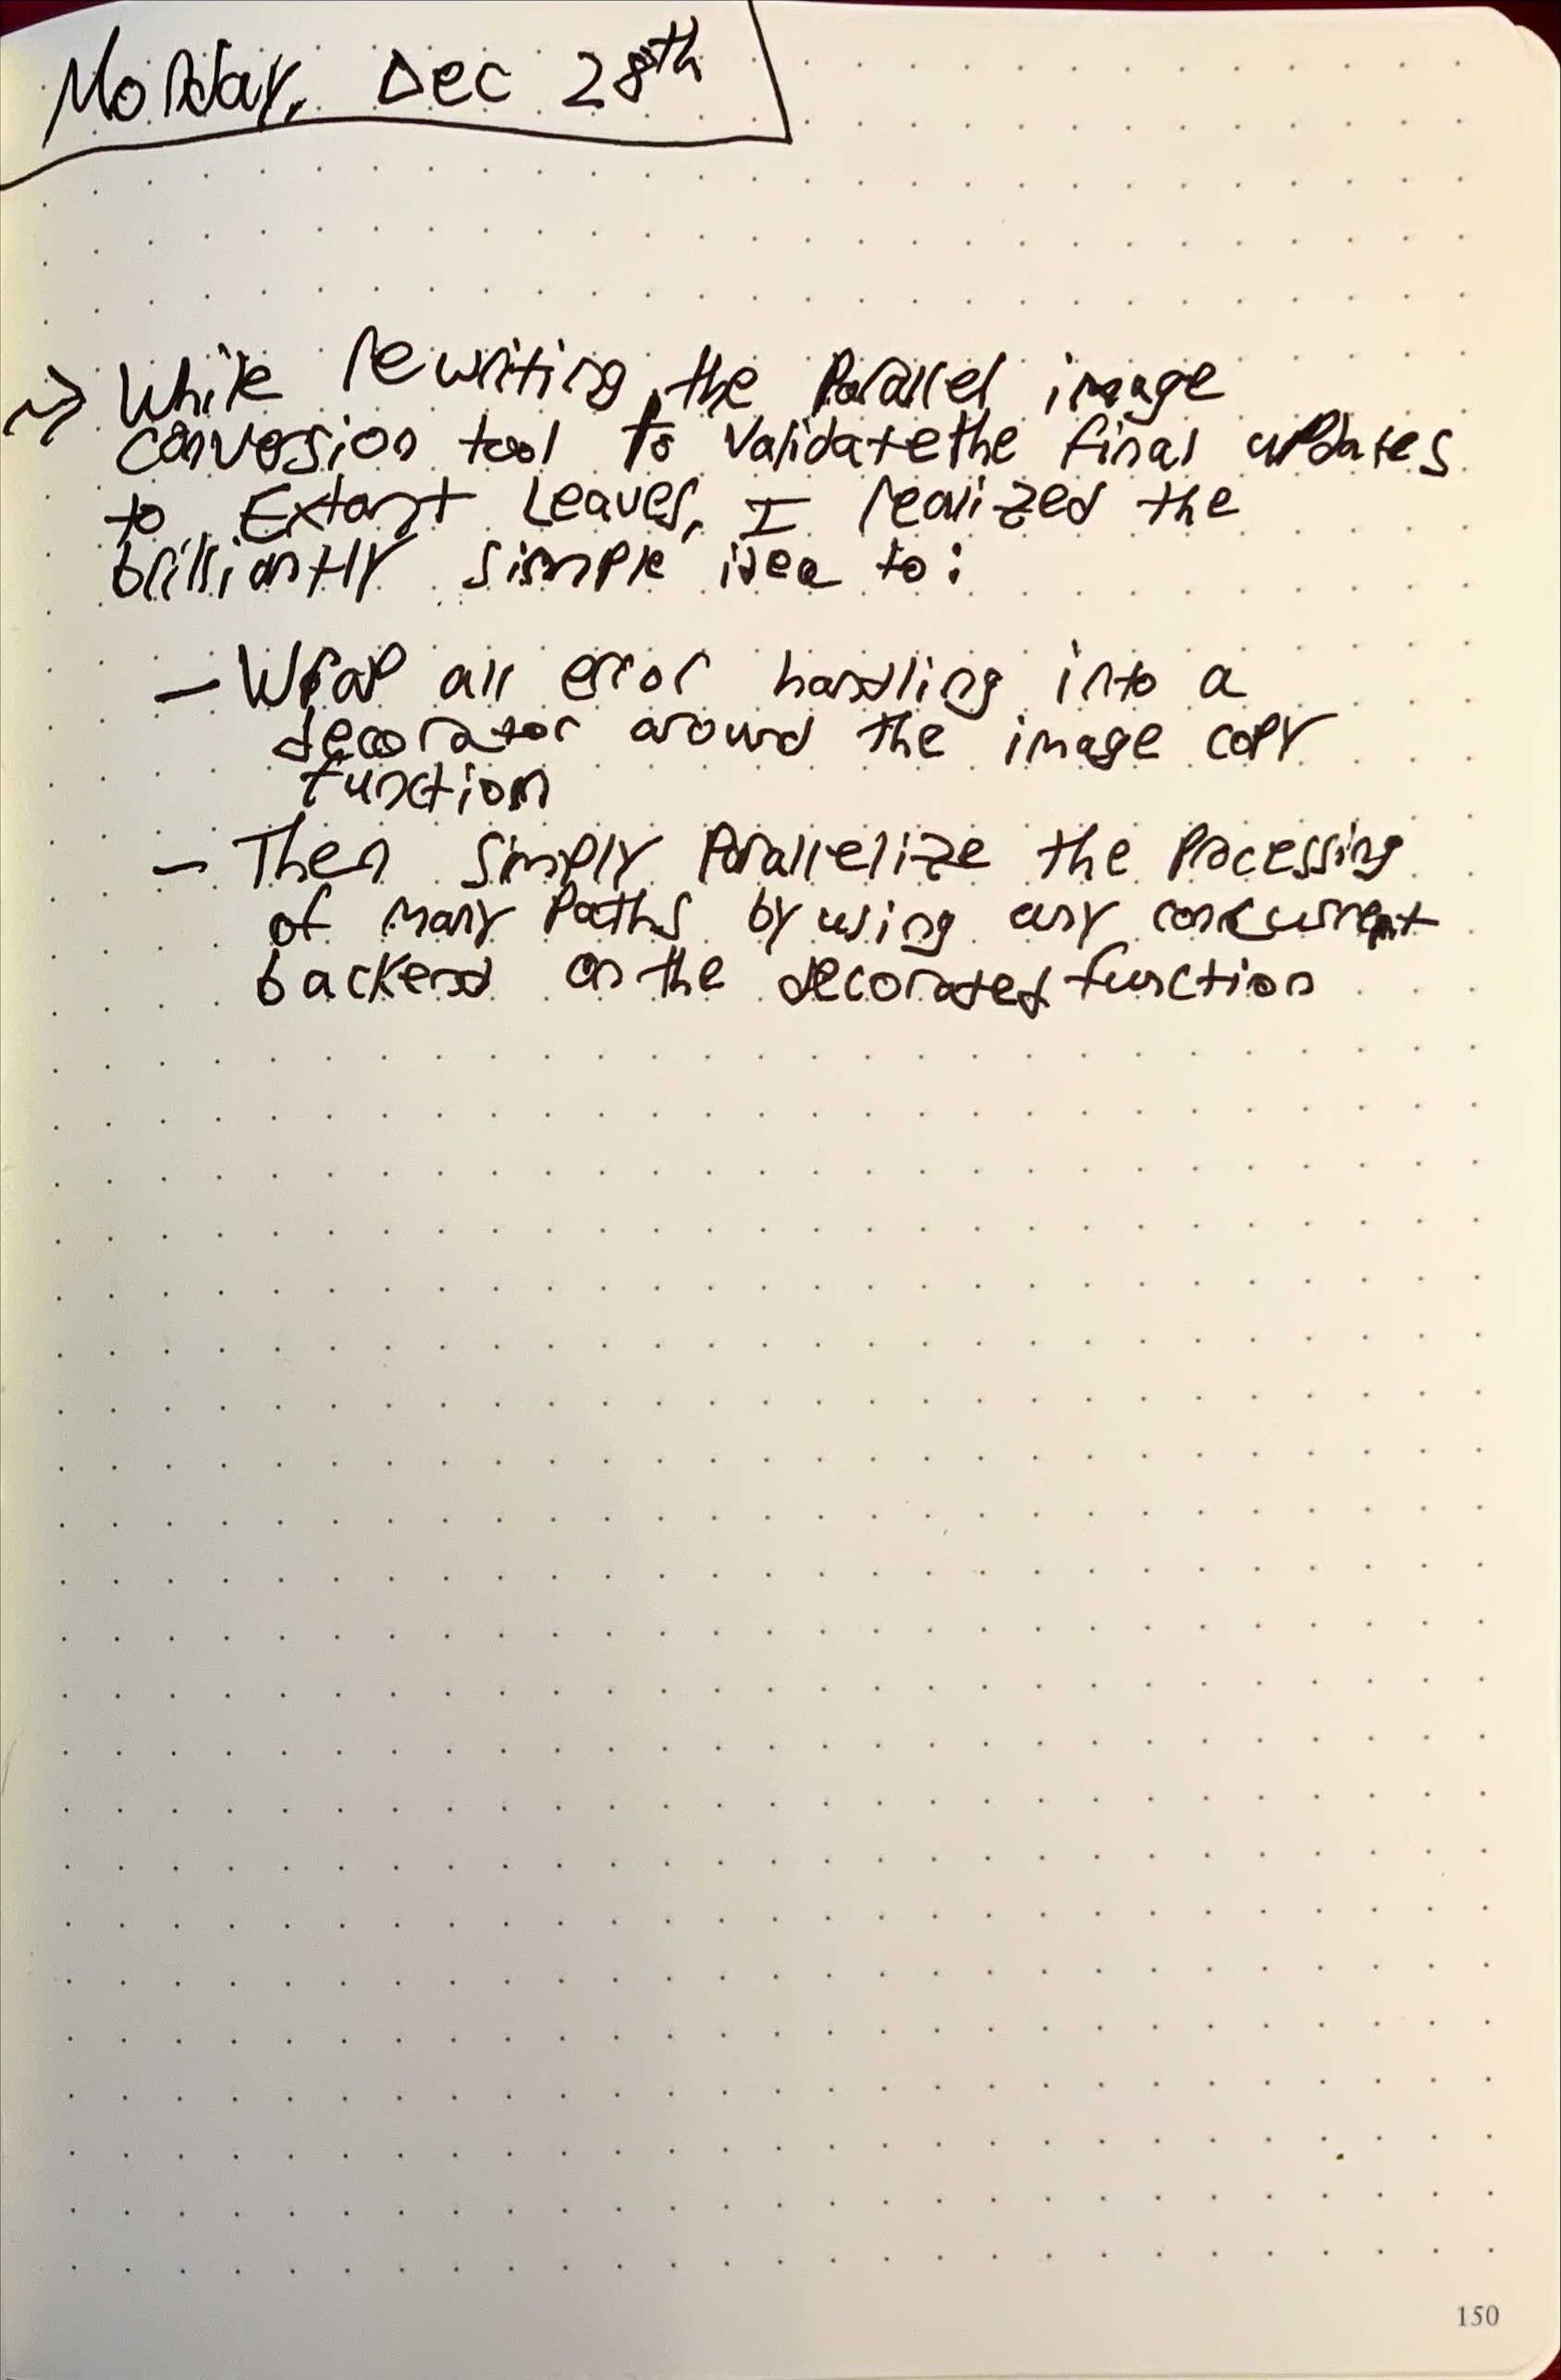 Monday, Dec 28th
~> While rewriting the parallel image
conversion tool to validate the final updates
to Extant Leaves, I realized the
brilliantly simple idea to:
- Wrap all error handling into a
decorator around the image copy
function
- Then simply parallelize the processing
of many paths by using any concurrent
backend on the decorated function
150